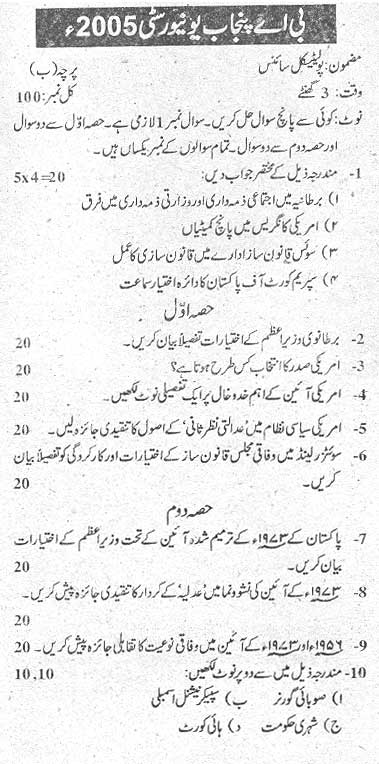 بی اے پنجاب یونیورسٹی 2005ء
مضمون: پولیٹیکل سائنس پرچہ (ب)
وقت: 3 گھنٹے کل نمبر: 100
نوٹ: کوئی سے پانچ سوال حل کریں۔ سوال نمبر 1 لازمی ہے۔ حصہ اوّل سے دو سوال
اور حصہ دوم سے دو سوال۔ تمام سوالوں کے نمبر یکساں ہیں۔
1- مندرجہ ذیل کے مختصر جواب دیں: 5x4=20
۱) برطانیہ میں اجتماعی ذمہ داری اور وزارتی ذمہ داری میں فرق
۲) امریکی کانگریس میں پانچ کمیٹیاں
۳) سوئس قانون ساز ادارے میں قانون سازی کا عمل
۴) سپریم کورٹ آف پاکستان کا دائرہ اختیار سماعت
حصہ اوّل
2- برطانوی وزیراعظم کے اختیارات تفصیلاً بیان کریں۔ 20
3- امریکی صدر کا انتخاب کس طرح ہوتا ہے؟ 20
4- امریکی آئین کے اہم خدوخال پر ایک تفصیلی نوٹ لکھیں۔ 20
5- امریکی سیاسی نظام میں 'عدالتی نظر ثانی' کے اصول کا تنقیدی جائزہ لیں۔ 20
6- سوئٹزرلینڈ میں وفاقی مجلس قانون ساز کے اختیارات اور کارکردگی کو تفصیلاً بیان
کریں۔ 20
حصہ دوم
7- پاکستان کے ۱۹۷۳ء کے ترمیم شدہ آئین کے تحت وزیراعظم کے اختیارات
بیان کریں۔ 20
8- ۱۹۷۳ء کے آئین کی نشوونما میں 'عدلیہ' کے کردار کا تنقیدی جائزہ پیش کریں۔
20
9- ۱۹۵۶ء اور ۱۹۷۳ء کے آئین میں وفاقی نوعیت کا تقابلی جائزہ پیش کریں۔ 20
10- مندرجہ ذیل میں سے دو پر نوٹ لکھیں: 10,10
۱) صوبائی گورنر ب) سپیکر نیشنل اسمبلی
ج) شہری حکومت د) ہائی کورٹ